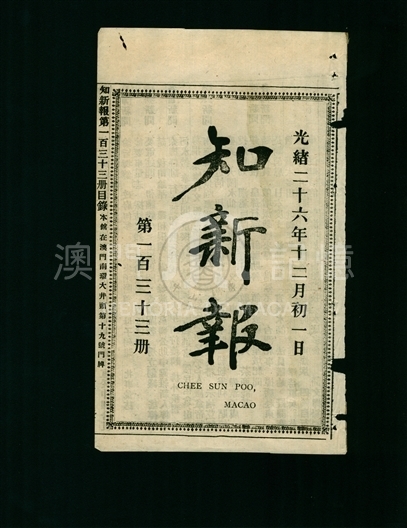 光緒二十六年十二月初一日
知新報
第一百三十三册
CHEE SUN POO,
MACAO
知新報第一百三十三册目錄 本館在澳門南環大井頭第十九號門牌
澳門記憶